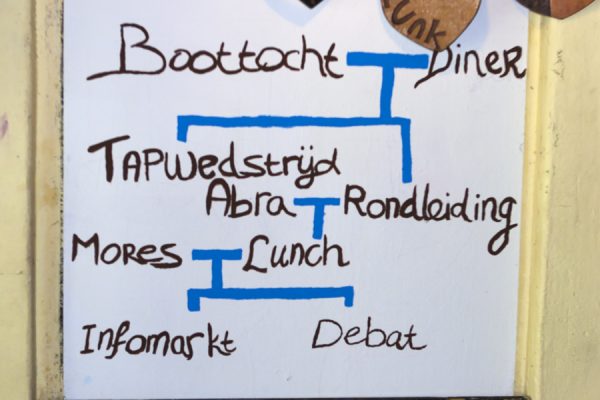 unk
Boottocht Diner
Tapwedstrijd
Abra Rondleiding
Mores Lunch
Infomarkt Debat